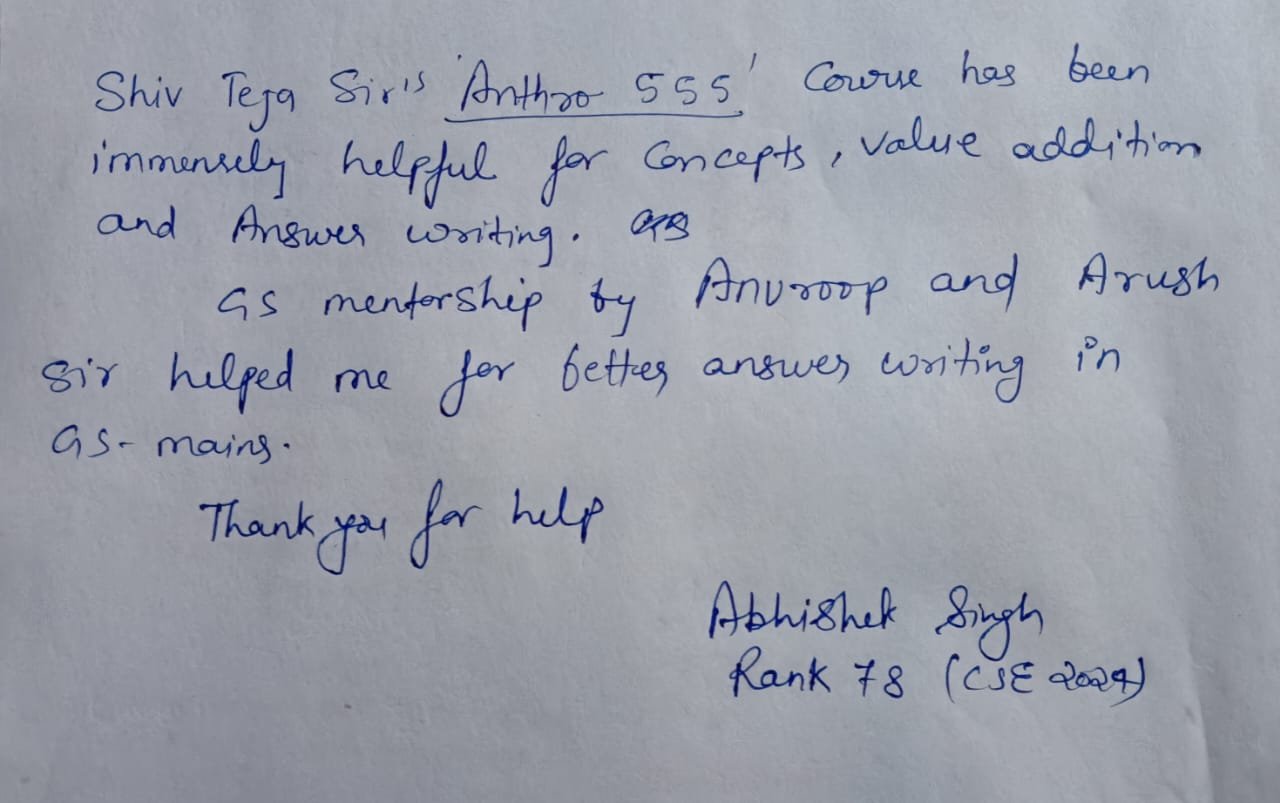 Shiv Teja Sir's 'Anthro 555' Course has been
immensely helpful for Concepts, value addition
and Answer writing.
GS mentorship by Anuroop and Arush
Sir helped me for better answer writing in
GS- mains.
Thank you for help
Abhishek Singh
Rank 78 (CSE 2024)